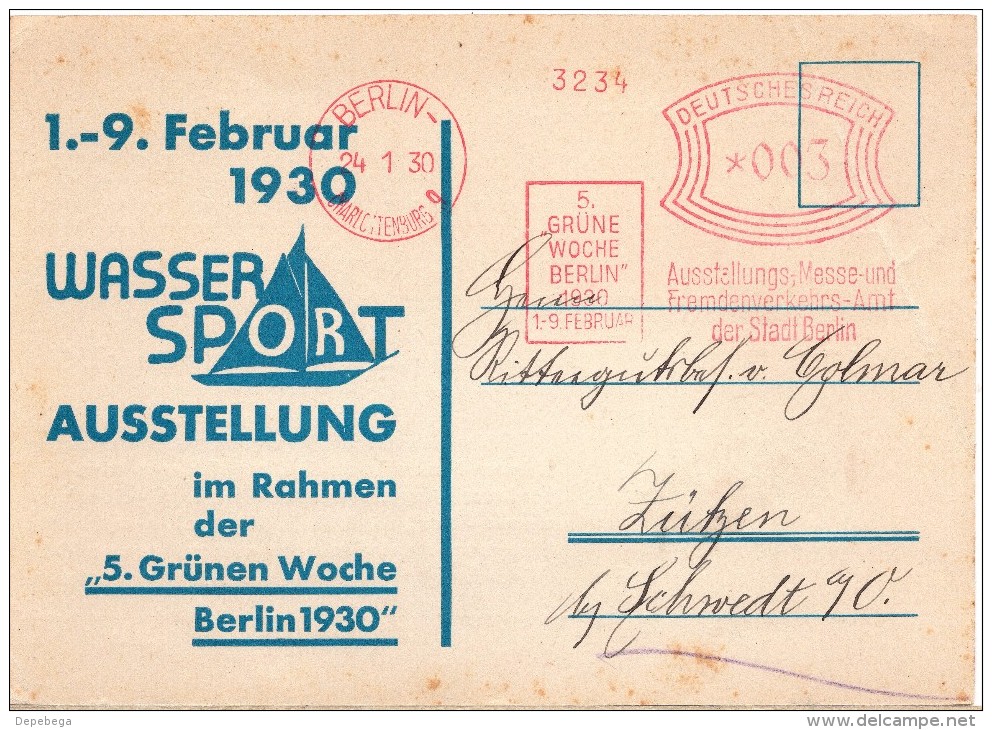 1.-9. Februar
1930
WASSER
SPORT
AUSSTELLUNG
im Rahmen
der
„5. Grünen Woche
Berlin 1930“
BERLIN-
24 1 30
CHARLOTTENBURG 9
3234
DEUTSCHES REICH
*003
5.
„GRÜNE
WOCHE
BERLIN”
1930
1.-9. FEBRUAR
Ausstellungs-, Messe- und
Fremdenverkehrs-Amt
der Stadt Berlin
Herrn
Rittergutsbes. v. Colmar
Zützen
b/ Schwedt a/O.
Depebega
www.delcampe.net